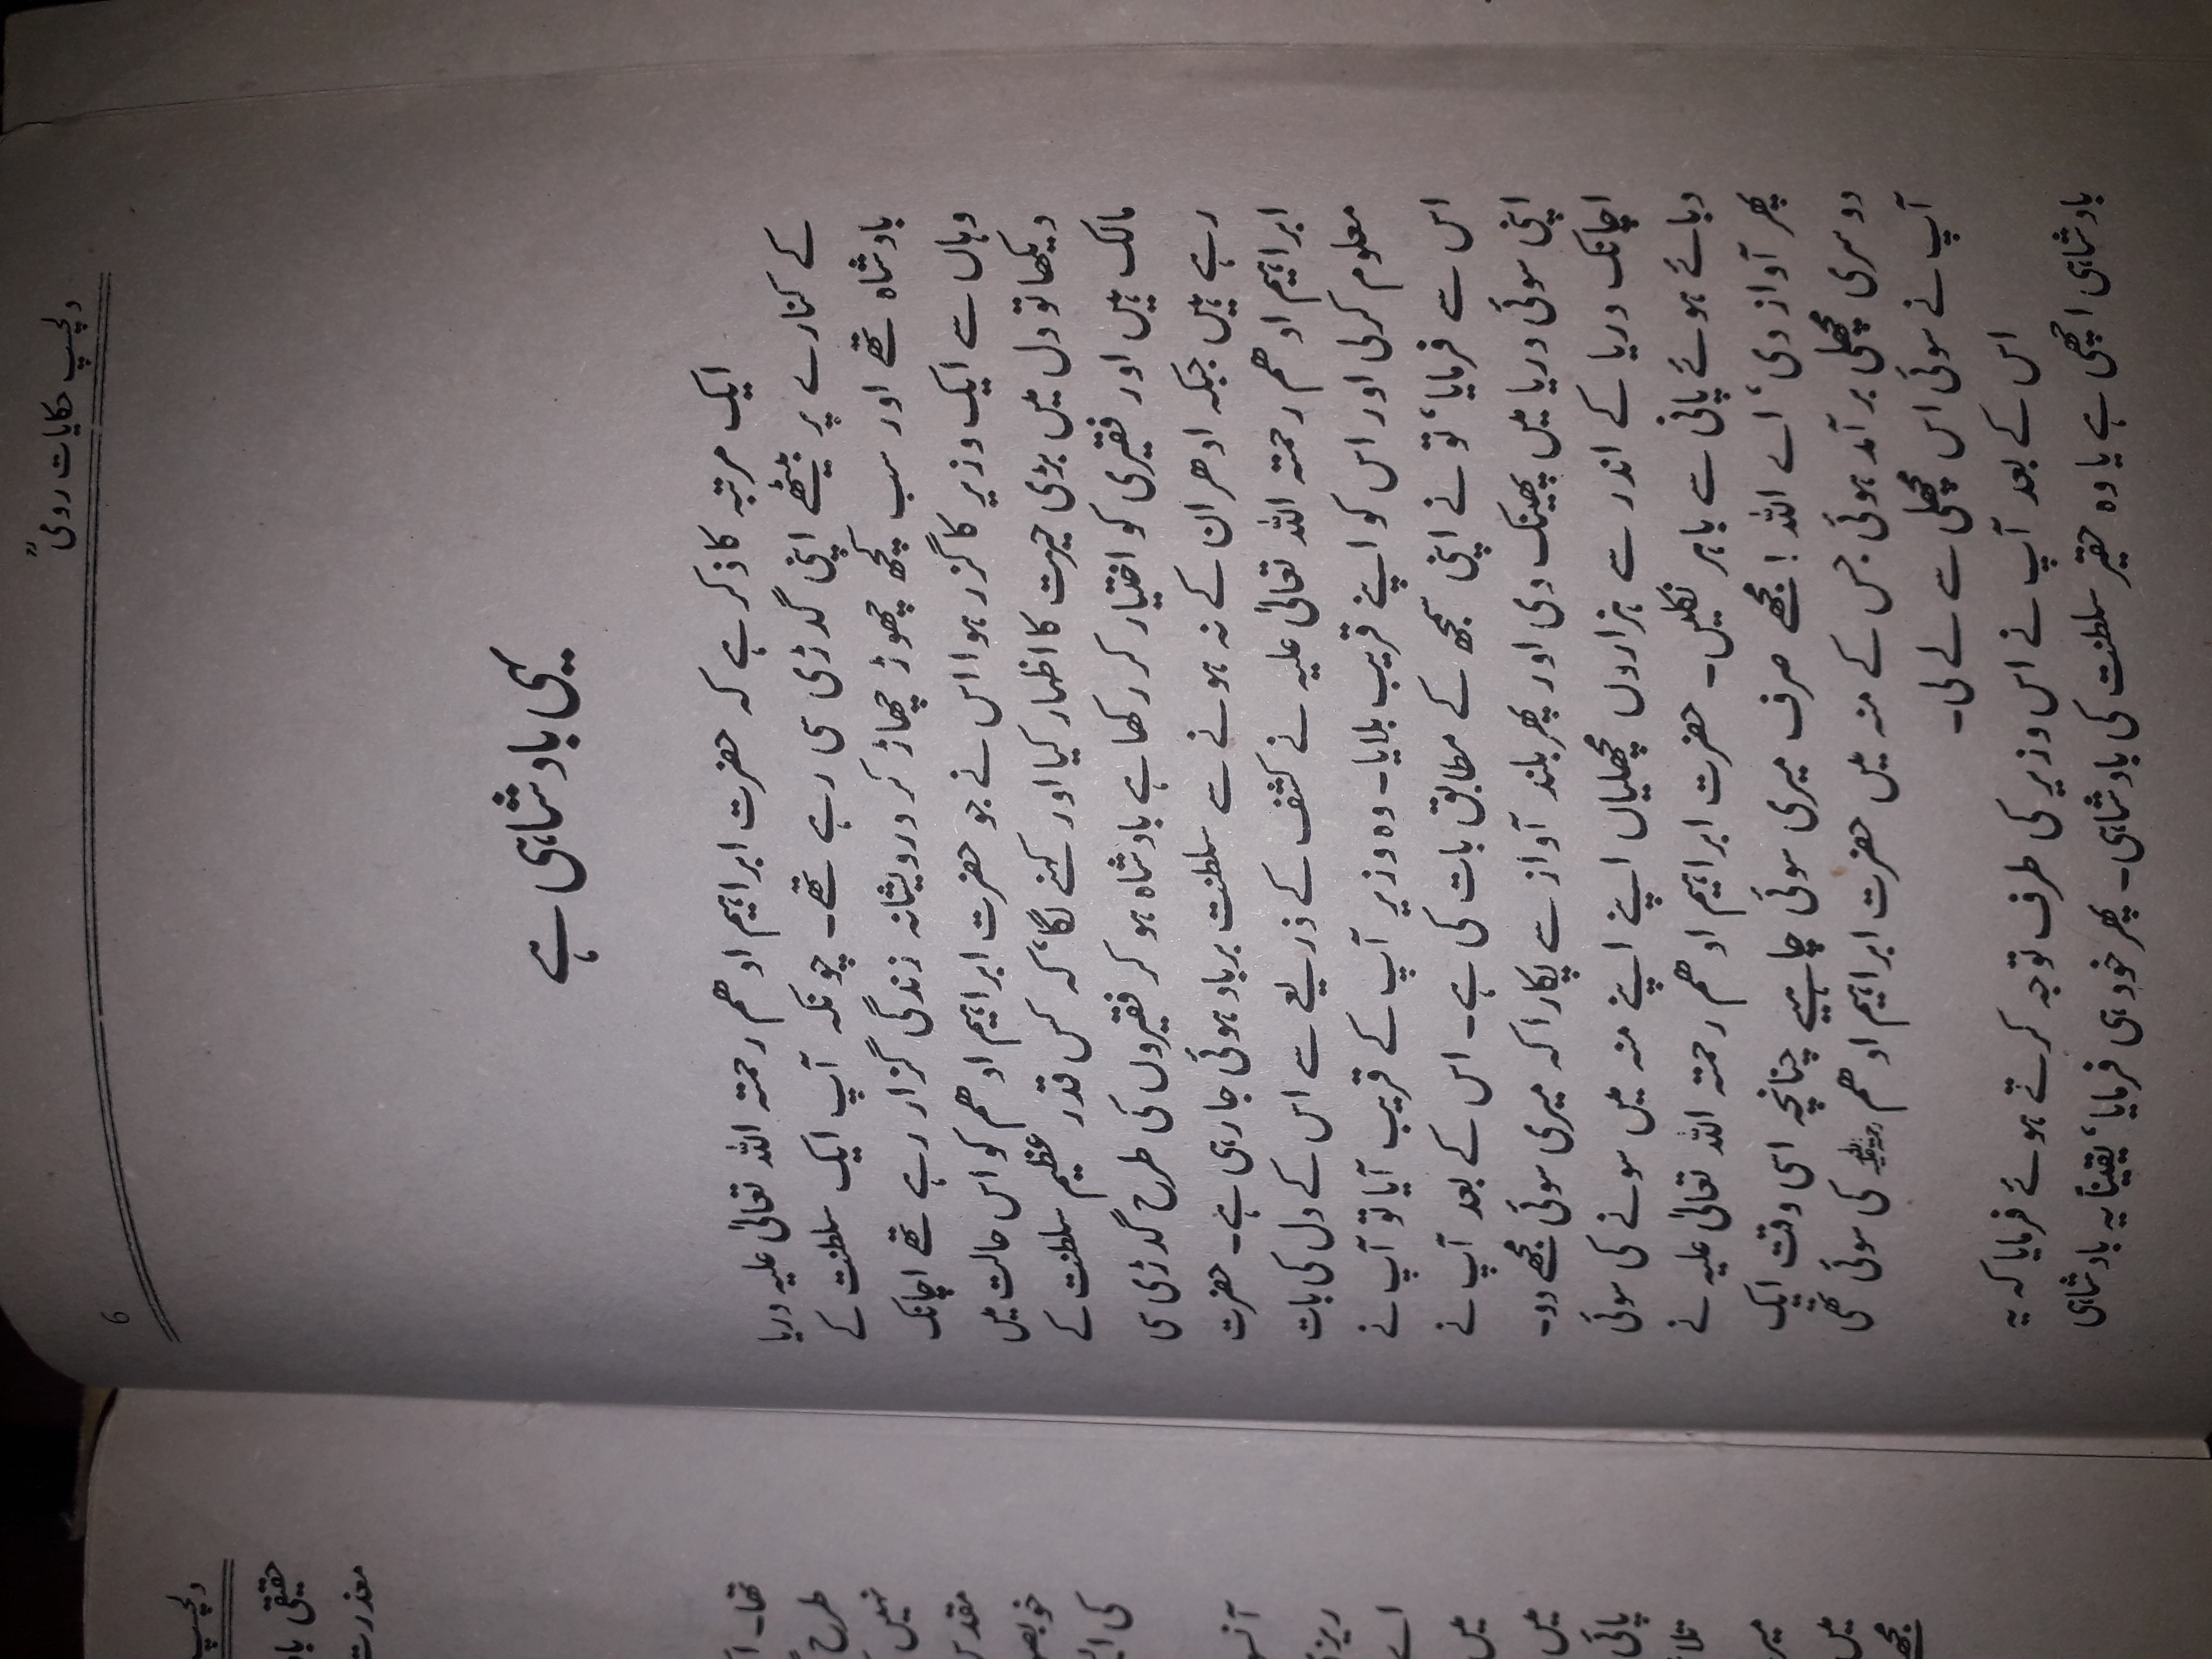 دلچسپ حکایات رومیؒ
6
یہی بادشاہی ہے
ایک مرتبہ کا ذکر ہے کہ حضرت ابراہیم ادھم رحمتہ اللہ تعالیٰ علیہ دریا
کے کنارے پر بیٹھے اپنی گدڑی سی رہے تھے۔ چونکہ آپ ایک سلطنت کے
بادشاہ تھے اور سب کچھ چھوڑ چھاڑ کر درویشانہ زندگی گزار رہے تھے اچانک
وہاں سے ایک وزیر کا گزر ہوا اس نے جو حضرت ابراہیم ادھم کو اس حالت میں
دیکھا تو دل میں بڑی حیرت کا اظہار کیا اور کہنے لگا‘ کہ کس قدر عظیم سلطنت کے
مالک ہیں اور فقیری کو اختیار کر رکھا ہے بادشاہ ہو کر فقیروں کی طرح گدڑی سی
رہے ہیں جبکہ ادھر ان کے نہ ہونے سے سلطنت برباد ہوئی جارہی ہے۔ حضرت
ابراہیم ادھم رحمتہ اللہ تعالیٰ علیہ نے کشف کے ذریعے سے اس کے دل کی بات
معلوم کرلی اور اس کو اپنے قریب بلایا۔ وہ وزیر آپ کے قریب آیا تو آپ نے
اس سے فرمایا‘ تو نے اپنی سمجھ کے مطابق بات کی ہے۔ اس کے بعد آپ نے
اپنی سوئی دریا میں پھینک دی اور پھر بلند آواز سے پکارا کہ میری سوئی مجھے دو۔
اچانک دریا کے اندر سے ہزاروں مچھلیاں اپنے اپنے منہ میں سونے کی سوئی
دبائے ہوئے پانی سے باہر نکلیں۔ حضرت ابراہیم ادھم رحمتہ اللہ تعالیٰ علیہ نے
پھر آواز دی‘ اے اللہ! مجھے صرف میری سوئی چاہیے چنانچہ اسی وقت ایک
دوسری مچھلی برآمد ہوئی جس کے منہ میں حضرت ابراہیم ادھم رحمتہ اللہ علیہ کی سوئی تھی
آپ نے سوئی اس مچھلی سے لے لی۔
اس کے بعد آپ نے اس وزیر کی طرف توجہ کرتے ہوئے فرمایا کہ یہ
بادشاہی اچھی ہے یا وہ حقیر سلطنت کی بادشاہی۔ پھر خود ہی فرمایا‘ یقیناً یہ بادشاہی
دلچسپ
حقیقی
معذرت
تھا۔
طرح
نہیں
کی
اے
میں
میں
پانی
میں
مجھے